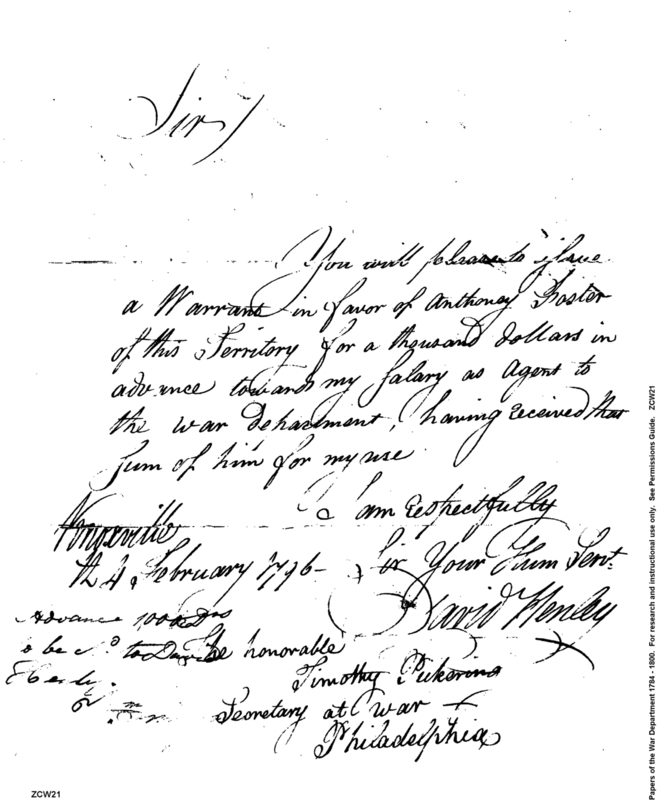 Sir
You will please to issue
a Warrant in favor of Anthoney Foster
of this Territory for a thousand dollars in
advance towards my Salary as Agent to
the war Department, having received that
sum of him for my use
I am respectfully
Knoxville
the 4 February 1796 - Sir Your Hum Servt.
David Henley
Advance 1000 Drs
The honorable
Timothy Pickering
Secretary at war
Philadelphia
ZCW21
Papers of the War Department 1784 - 1800. For research and instructional use only. See Permissions Guide. ZCW21